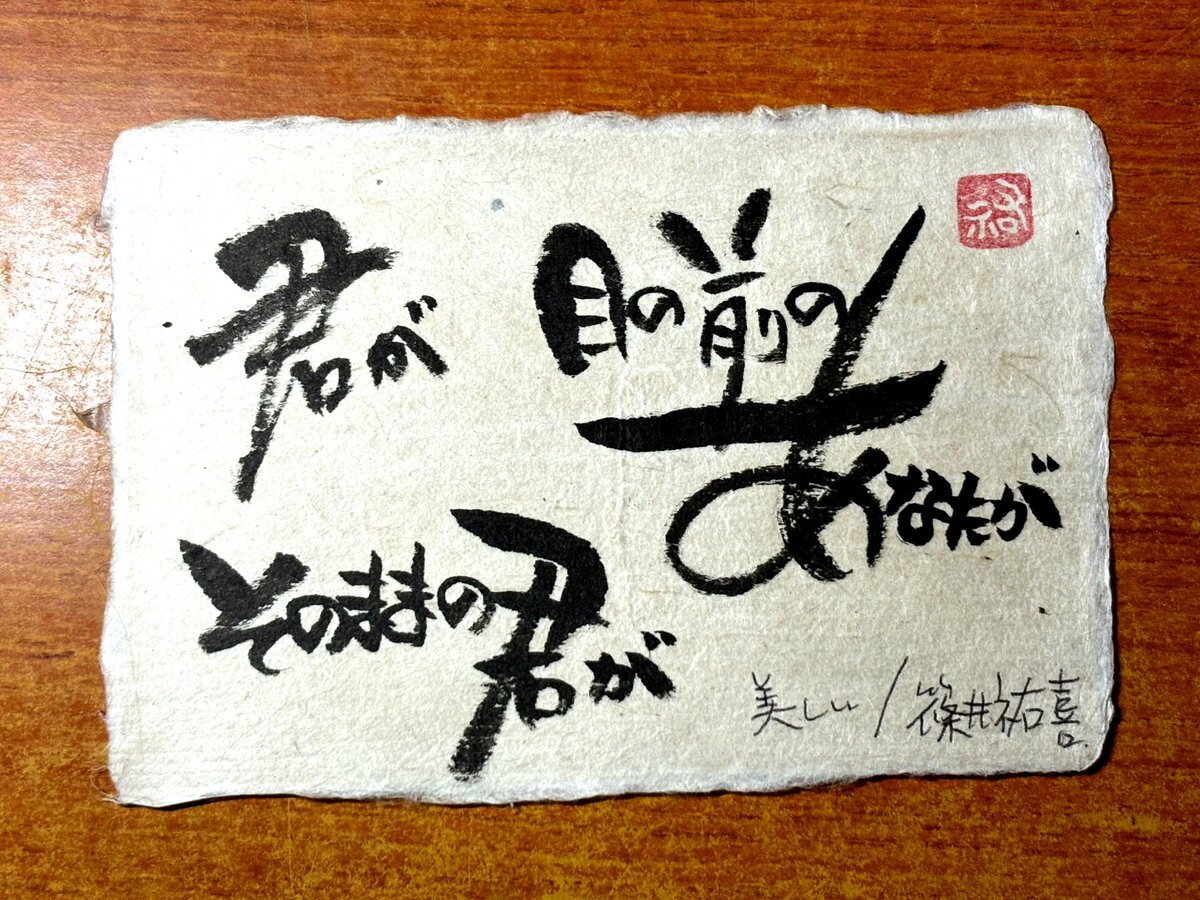 君が
目の前の
あなたが
そのままの君が
美しい/篠井祐喜
祐